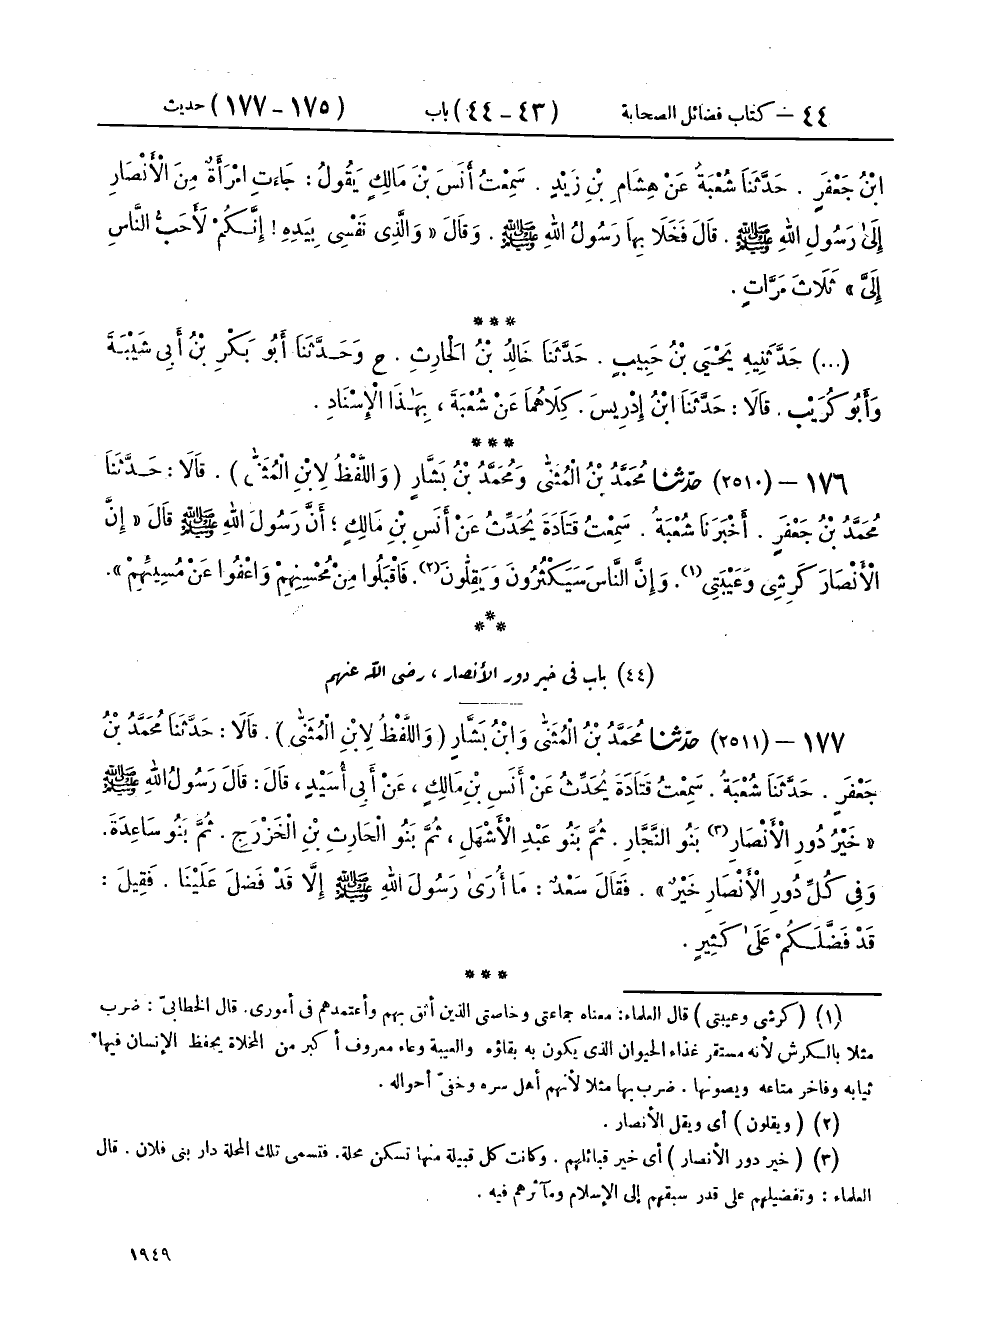 ٤٤ – كتاب فضائل الصحابة (٤٣ – ٤٤) باب (١٧٥ – ١٧٧) حديث
ابْنُ جَعْفَرٍ . حَدَّثَنَا شُعْبَةُ عَنْ هِشَامِ بْنِ زَيْدٍ . سَمِعْتُ أَنَسَ بْنَ مَالِكٍ يَقُولُ : جَاءَتِ امْرَأَةٌ مِنَ الْأَنْصَارِ
إِلَىٰ رَسُولِ اللهِ ﷺ . قَالَ فَخَلَا بِهَا رَسُولُ اللهِ ﷺ . وَقَالَ « وَالَّذِى نَفْسِى بِيَدِهِ ! إِنَّكُمْ لَأَحَبُّ النَّاسِ
إِلَىَّ » ثَلَاثَ مَرَّاتٍ .
* * *
(...) حَدَّثَنِيهِ يَحْيَى بْنُ حَبِيبٍ . حَدَّثَنَا خَالِدُ بْنُ الْحَارِثِ . ح وَحَدَّثَنَا أَبُو بَكْرِ بْنُ أَبِى شَيْبَةَ
وَأَبُو كُرَيْبٍ . قَالَا : حَدَّثَنَا ابْنُ إِدْرِيسَ . كِلَاهُمَا عَنْ شُعْبَةَ ، بِهَٰذَا الْإِسْنَادِ .
* * *
١٧٦ – (٢٥١٠) حَدَّثَنَا مُحَمَّدُ بْنُ الْمُثَنَّىٰ وَمُحَمَّدُ بْنُ بَشَّارٍ ( وَاللَّفْظُ لِابْنِ الْمُثَنَّىٰ ) . قَالَا : حَدَّثَنَا
مُحَمَّدُ بْنُ جَعْفَرٍ . أَخْبَرَنَا شُعْبَةُ . سَمِعْتُ قَتَادَةَ يُحَدِّثُ عَنْ أَنَسِ بْنِ مَالِكٍ ؛ أَنَّ رَسُولَ اللهِ ﷺ قَالَ « إِنَّ
الْأَنْصَارَ كَرِشِى وَعَيْبَتِى(١). وَإِنَّ النَّاسَ سَيَكْثُرُونَ وَيَقِلُّونَ(٢). فَاقْبَلُوا مِنْ مُحْسِنِهِمْ وَاعْفُوا عَنْ مُسِيئِهِمْ ».
* * *
(٤٤) باب فى خير دور الأنصار ، رضى الله عنهم
١٧٧ – (٢٥١١) حَدَّثَنَا مُحَمَّدُ بْنُ الْمُثَنَّىٰ وَابْنُ بَشَّارٍ ( وَاللَّفْظُ لِابْنِ الْمُثَنَّىٰ ) . قَالَا : حَدَّثَنَا مُحَمَّدُ بْنُ
جَعْفَرٍ . حَدَّثَنَا شُعْبَةُ . سَمِعْتُ قَتَادَةَ يُحَدِّثُ عَنْ أَنَسِ بْنِ مَالِكٍ ، عَنْ أَبِى أُسَيْدٍ ، قَالَ : قَالَ رَسُولُ اللهِ ﷺ
« خَيْرُ دُورِ الْأَنْصَارِ(٣) بَنُو النَّجَّارِ . ثُمَّ بَنُو عَبْدِ الْأَشْهَلِ ، ثُمَّ بَنُو الْحَارِثِ بْنِ الْخَزْرَجِ . ثُمَّ بَنُو سَاعِدَةَ.
وَفِى كُلِّ دُورِ الْأَنْصَارِ خَيْرٌ » . فَقَالَ سَعْدٌ : مَا أُرَىٰ رَسُولَ اللهِ ﷺ إِلَّا قَدْ فَضَلَ عَلَيْنَا . فَقِيلَ :
قَدْ فَضَّلَكُمْ عَلَىٰ كَثِيرٍ .
* * *
(١) ( كرشى وعيبتى ) قال العلماء: معناه جماعتى وخاصتى الذين أثق بهم وأعتمدهم فى أمورى. قال الخطابىّ : ضرب
مثلا بالكرش لأنه مستقر غذاء الحيوان الذى يكون به بقاؤه والعيبة وعاء معروف أكبر من المخلاة يحفظ الإنسان فيها
ثيابه وفاخر متاعه ويصونها . ضرب بها مثلا لأنهم أهل سره وخفىّ أحواله .
(٢) ( ويقلون ) أى ويقل الأنصار .
(٣) ( خير دور الأنصار ) أى خير قبائلهم . وكانت كل قبيلة منها تسكن محلة. فتسمى تلك المحلة دار بنى فلان . قال
العلماء : وتفضيلهم على قدر سبقهم إلى الإسلام ومآثرهم فيه .
١٩٤٩